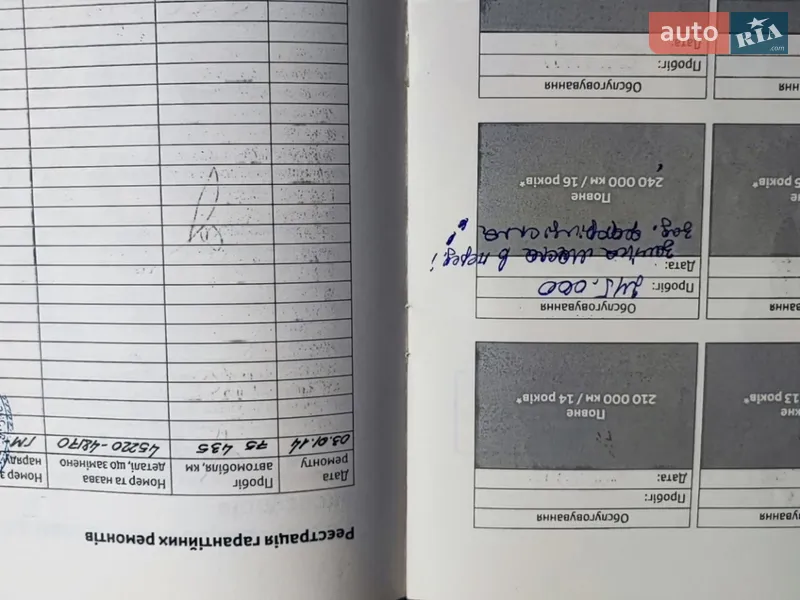 Обслуговування
Пробіг:
Дата:
Повне
210 000 км / 14 років*
Обслуговування
Пробіг: 245.000
Дата:
заміна масла в перед і
зад.
Повне
240 000 км / 16 років*
Обслуговування
Пробіг:
Дата:
Реєстрація гарантійних ремонтів
Дата ремонту
Пробіг автомобіля, км
Номер та назва деталі, що замінено
Номер з
наряду
03.01.14 75 435 45220-48170 ГМ-
auto RIA .com